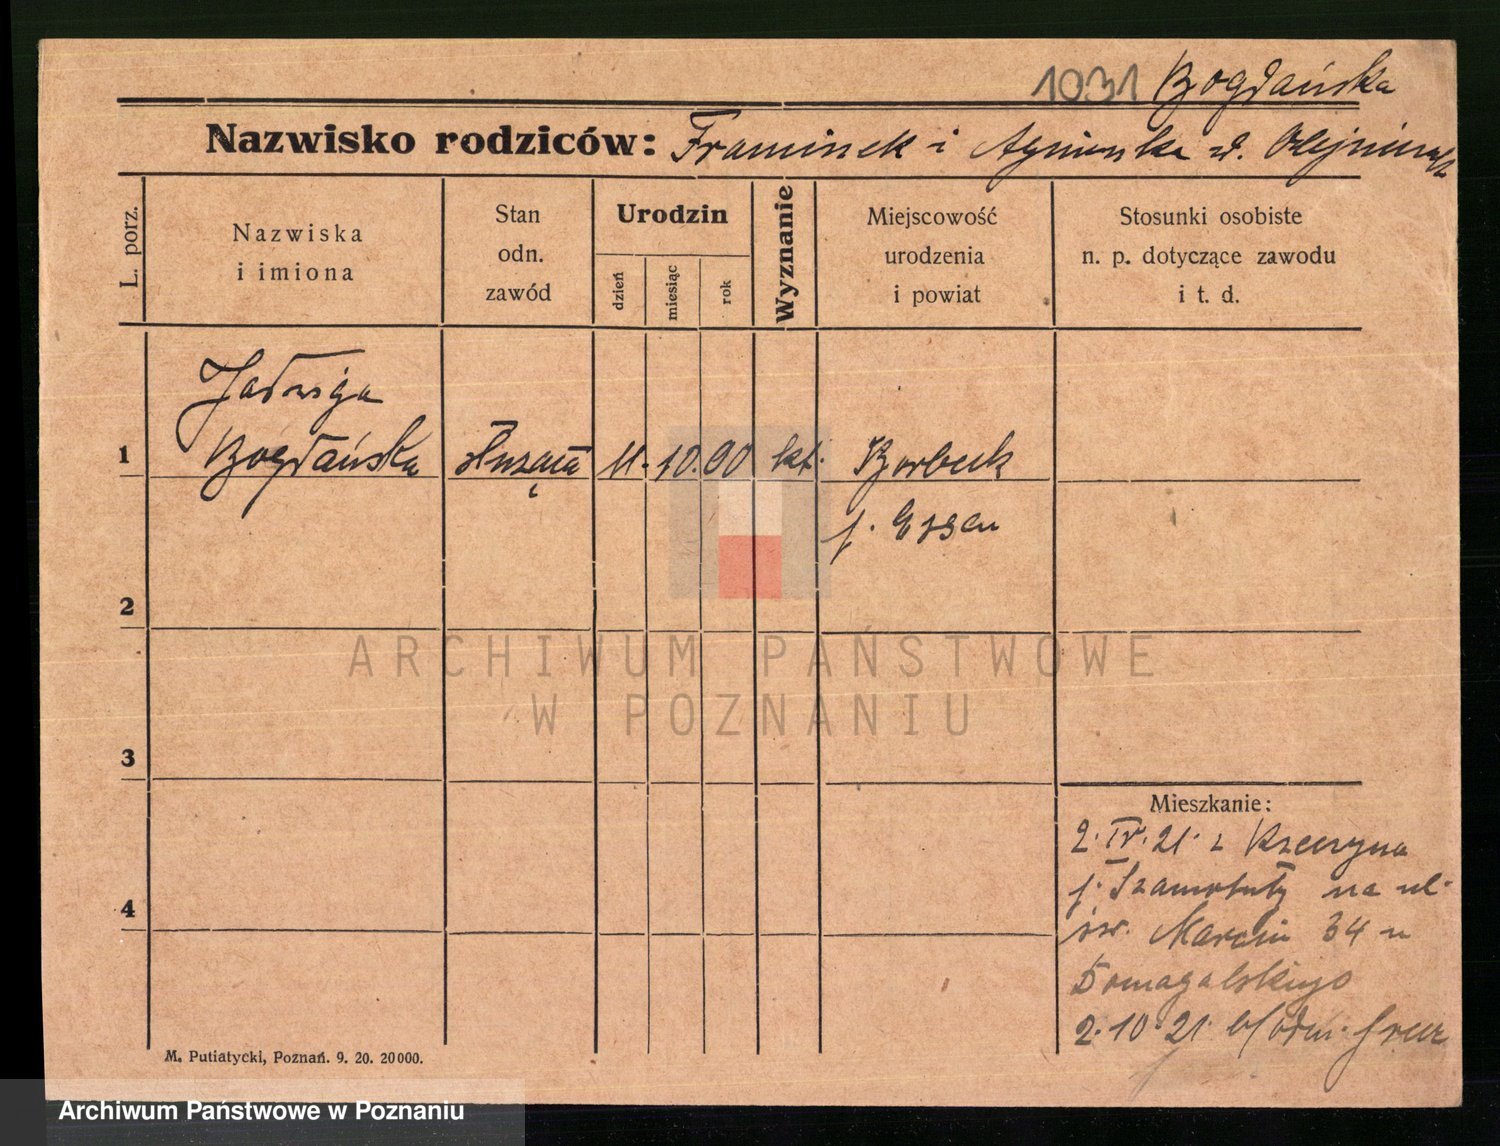 1031 Bogdańska
Nazwisko rodziców: Franciszek i Agnieszka
L. porz.
Nazwiska
i imiona
Stan
odn.
zawód
Urodzin
dzień
miesiąc
rok
Wyznanie
Miejscowość
urodzenia
i powiat
Stosunki osobiste
n. p. dotyczące zawodu
i t. d.
Jadwiga
1 Bogdańska służąca 11. 10. 00 kt. Borbeck
p. Essen
2
3
4
Mieszkanie:
2. IV. 21. z
p. Szamotuły na ul.
św. Marcin 34 u
Domagalskiego
2. 10. 21.
M. Putiatycki, Poznań. 9. 20. 20000.
ARCHIWUM PAŃSTWOWE
W POZNANIU
Archiwum Państwowe w Poznaniu